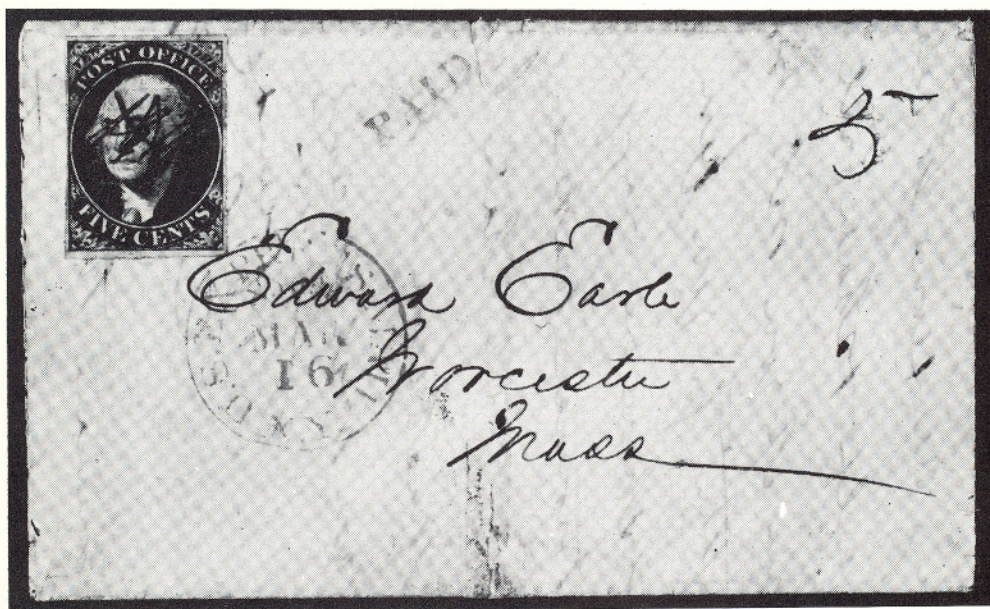 POST OFFICE
FIVE CENTS
PAID
5
Edward Earle
Worcester
Mass
MAR
16